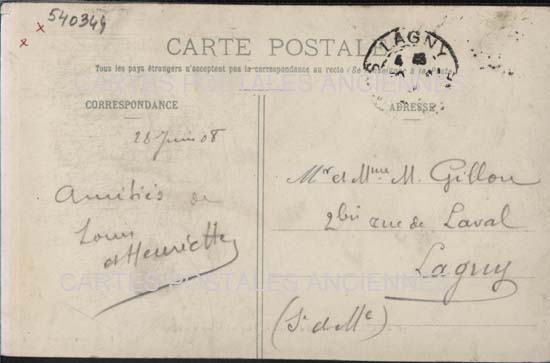 540349
CARTE POSTALE
LAGNY
4
Tous les pays étrangers n'acceptent pas la correspondance au recto (Se renseigner à la Poste)
CARTES POSTALES ANCIENNES
CORRESPONDANCE
ADRESSE
28 Juin 08
Amitiés de
Louis
et Henriette
Mr et Mme M. Gillou
2 bis rue de Laval
Lagny
(S. et Me)
CARTES POSTALES ANCIENNES